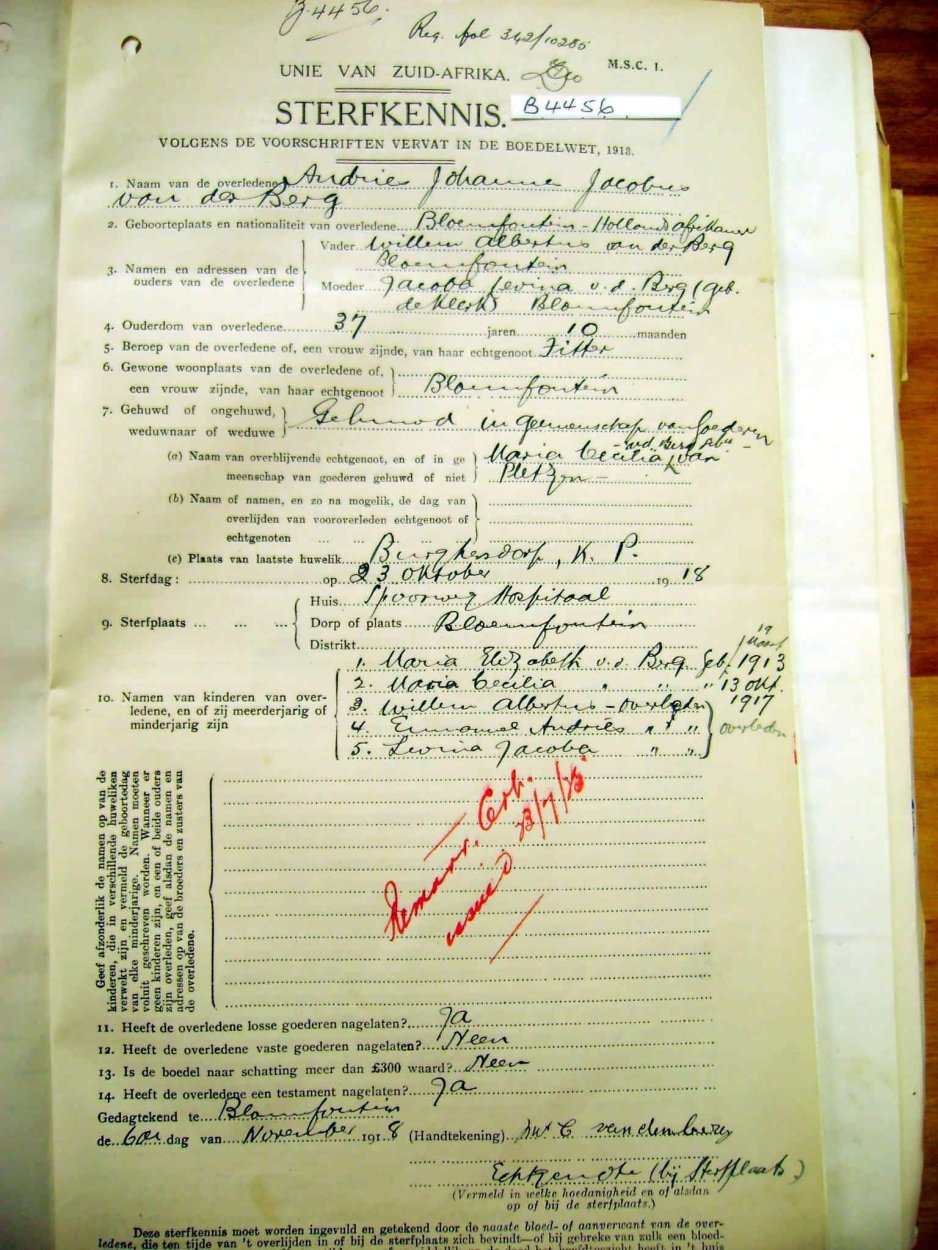 B.4456.
Reg. fol 342/10285
UNIE VAN ZUID-AFRIKA.
M.S.C. 1.
STERFKENNIS.
B4456
VOLGENS DE VOORSCHRIFTEN VERVAT IN DE BOEDELWET, 1913.
1. Naam van de overledene Andries Johannes Jacobus
van der Berg
2. Geboorteplaats en nationaliteit van overledene. Bloemfontein - Hollands Afrikaner
Vader Willem Albertus van der Berg
Bloemfontein
3. Namen en adressen van de ouders van de overledene
Moeder Jacoba Levina v. d. Berg (geb.
de Klerk) Bloemfontein
4. Ouderdom van overledene 37 jaren 10 maanden
5. Beroep van de overledene of, een vrouw zijnde, van haar echtgenoot Fitter
6. Gewone woonplaats van de overledene of,
een vrouw zijnde, van haar echtgenoot Bloemfontein
7. Gehuwd of ongehuwd,
weduwnaar of weduwe Gehuwd in gemeenschap van Goederen
(a) Naam van overblijvende echtgenoot, en of in ge
meenschap van goederen gehuwd of niet
Maria Cecilia v.d. Berg geb. van
Pletzen -
(b) Naam of namen, en zo na mogelik, de dag van
overlijden van vooroverleden echtgenoot of
echtgenoten ... ... ... ...
(c) Plaats van laatste huwelik Burghersdorp, K. P.
8. Sterfdag: op 23 Oktober 1918
Huis Spoorweg Hospitaal
9. Sterfplaats ... ... ... Dorp of plaats Bloemfontein
Distrikt
1. Maria Elizabeth v. d. Berg geb. 19 Maart 1913
2. Maria Cecilia " " " 13 Okt. 1917
10. Namen van kinderen van over-
ledene, en of zij meerderjarig of
minderjarig zijn
3. Willem Albertus - overleden
4. Emmanuel Andries " "
5. Levina Jacoba " "
overleden
Geef afzonderlik de namen op van de
kinderen, die in verschillende huweliken
verwekt zijn en vermeld de geboortedag
van elke minderjarige. Namen moeten
voluit geschreven worden. Wanneer er
geen kinderen zijn, en een of beide ouders
zijn overleden, geef alsdan de namen en
adressen op van de broeders en zusters van
de overledene.
Remarr. Cert.
issued 23/7/25
11. Heeft de overledene losse goederen nagelaten? Ja
12. Heeft de overledene vaste goederen nagelaten? Neen
13. Is de boedel naar schatting meer dan £300 waard? Neen
14. Heeft de overledene een testament nagelaten? Ja
Gedagtekend te Bloemfontein
de 6de dag van November 1918 (Handtekening) M C van den berg
Echtgenote (bij Sterfplaats)
(Vermeld in welke hoedanigheid en of alsdan
op of bij de sterfplaats.)
Deze sterfkennis moet worden ingevuld en getekend door de naaste bloed- of aanverwant van de over-
ledene, die ten tijde van 't overlijden in of bij de sterfplaats zich bevindt—of bij gebreke van zulk een bloed-